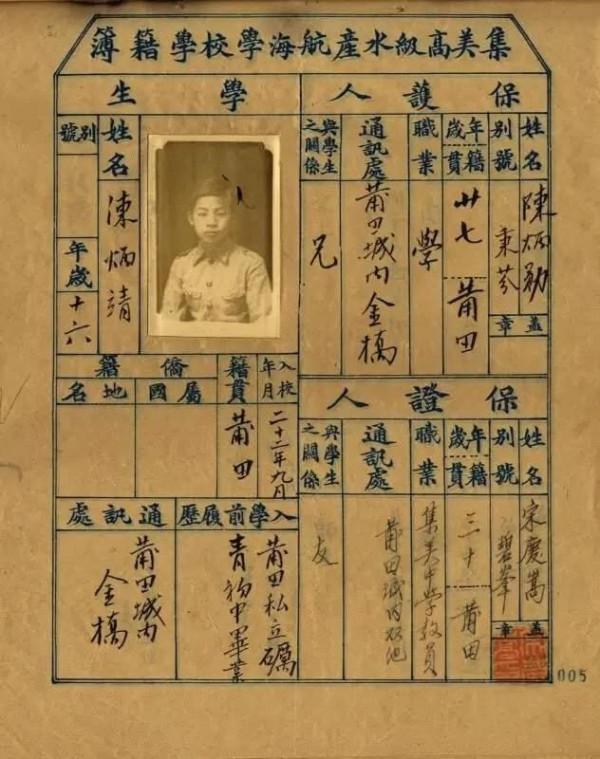 集美高級水產航海學校學籍簿
保護人
姓名 陳炳勛
別號 秉芬
蓋章
年歲 廿七
籍貫 莆田
職業 學
通訊處 莆田城內金橋
與學生之關係 兄
保證人
姓名 宋慶嵩
別號 碧峯
蓋章
年歲 三十
籍貫 莆田
職業 集美中學教員
通訊處 莆田城內
與學生之關係 友
學生
姓名 陳炳靖
別號
年歲 十六
入校年月 二十二年九月
籍貫 莆田
僑籍
屬國
地名
入學前履歷 莆田私立礪青初中畢業
通訊處 莆田城內金橋
005